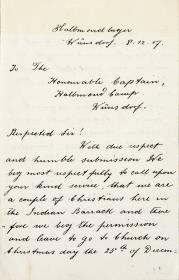 Halbmondlager
Wünsdorf. 8.12.17.
To The
Honourable Captain,
Halbmond Camp
Wünsdorf.
Respected Sir!
With due respect
and humble submission We
beg most respectfully to call upon
your kind service, that we are
a couple of Christians here in
the Indian Barrack and there-
fore we beg the permission
and leave to go to Church on
Christmas day the 25th of Decem-